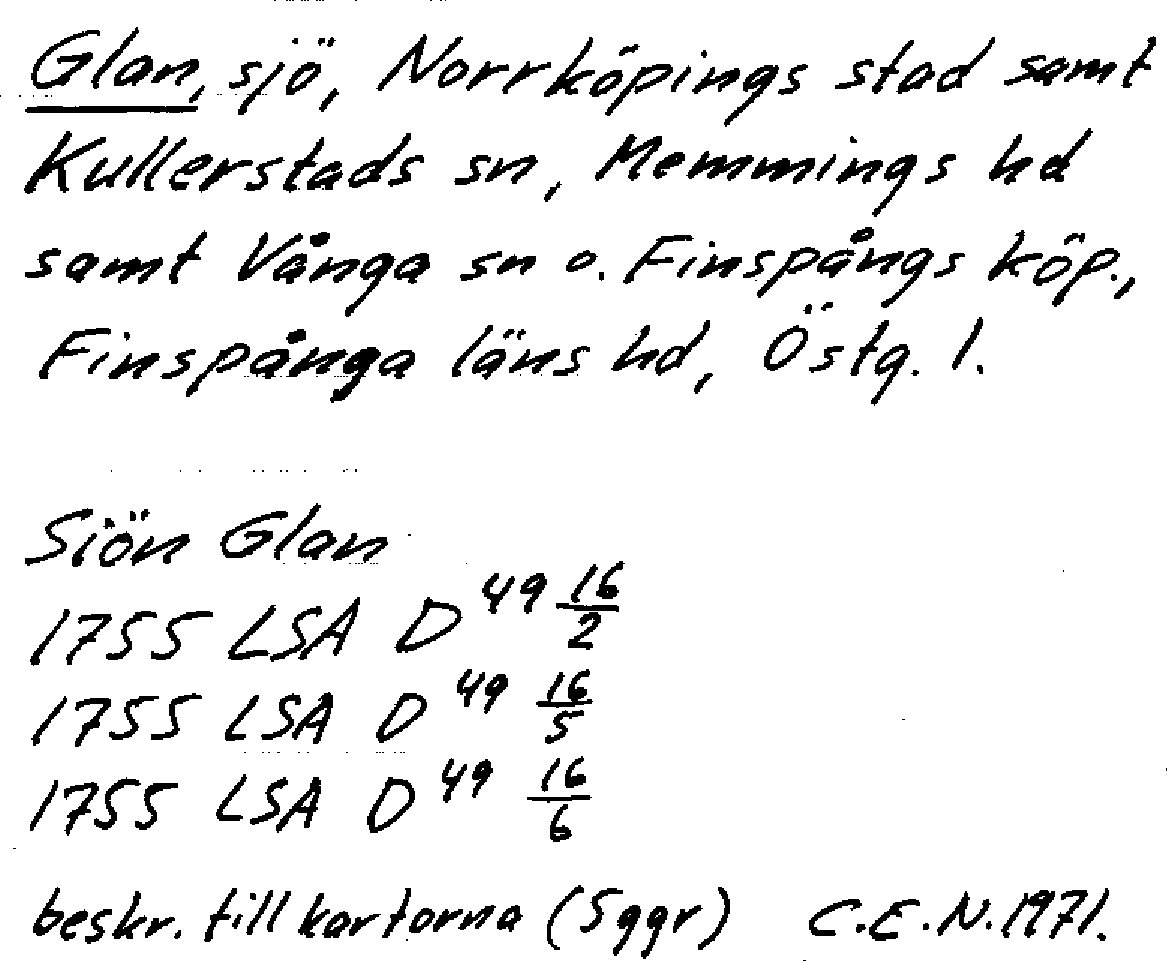 Glan, sjö, Norrköpings stad samt
Kullerstads sn, Memmings hd
samt Vånga sn o. Finspångs köp.,
Finspånga läns hd, Östg. l.
Siön Glan
1755 LSA D 49 16/2
1755 LSA D 49 16/5
1755 LSA D 49 16/6
beskr. till kartorna (5ggr) C.E.N. 1971.